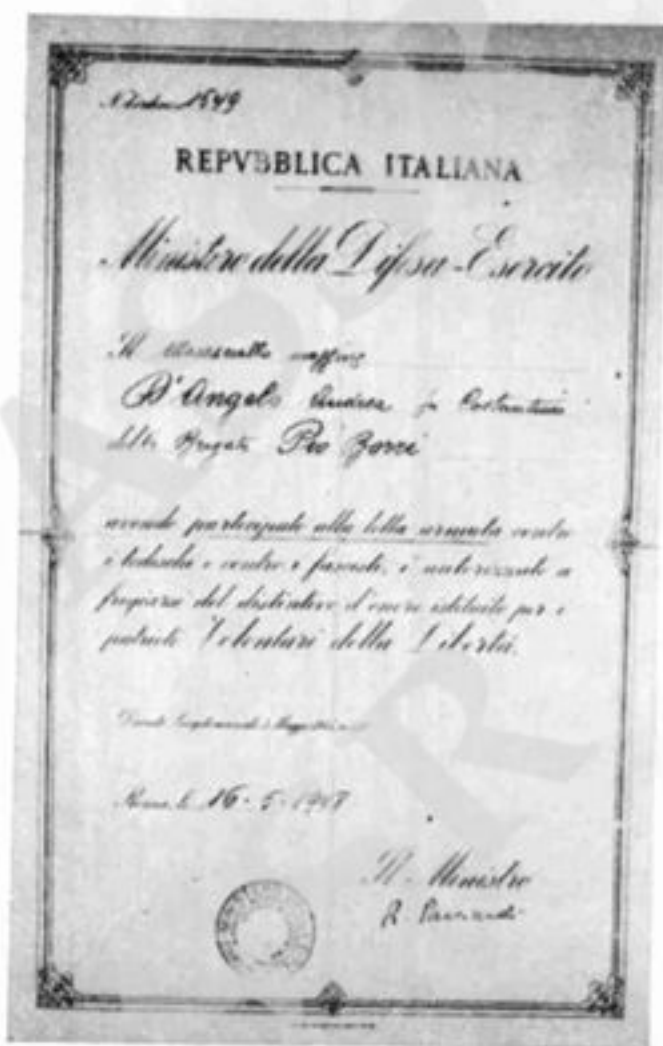 N. d'ordine 1549
REPVBBLICA ITALIANA
Ministero della Difesa-Esercito
Il Maresciallo maggiore
D'Angelo Andrea fu Costantino
della Brigata Pio Borri
avendo partecipato alla lotta armata contro
i tedeschi e contro i fascisti, è autorizzato a
fregiarsi del distintivo d'onore istituito per i
patrioti Volontari della Libertà.
Decreto Luogotenenziale 3 Maggio
Roma, li 16-5-
Il Ministro
R. Pacciardi